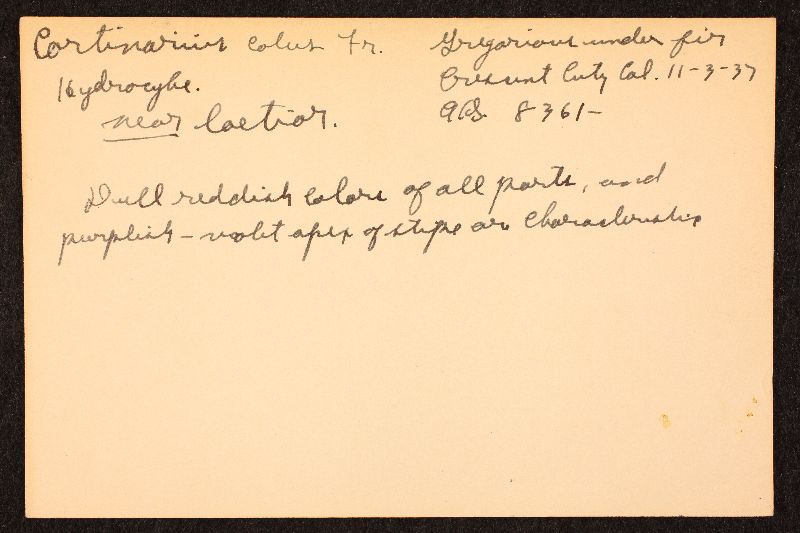 Cortinarius colus Fr.
Hydrocybe.
near laetior.
Gregarious under fir
Crescent City Cal. 11-3-37
AHS. 8361-
Dull reddish colors of all parts, and
purplish-violet apex of stipe are characteristic